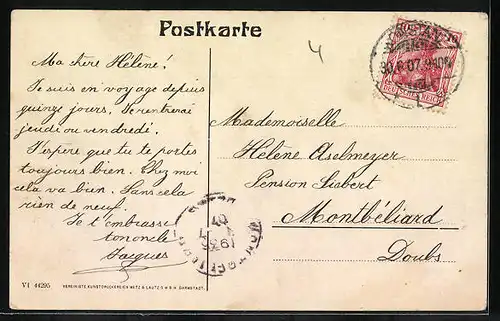 Postkarte
4
Ma chere Hélène!
Je suis en voyage depuis
quinze jours. Je rentrerai
jeudi ou vendredi.
J'espere que tu te portes
toujours bien. Chez moi
cela va bien. Sans cela
rien de neuf.
Je t'embrasse
ton oncle
Jacques
Mademoiselle
Helene Aselmeyer
Pension Siebert
Montbéliard
Doubs
DEUTSCHES REICH
VI 44295
VEREINIGTE KUNSTDRUCKEREIEN METZ & LAUTZ G.M.B.H. DARMSTADT.